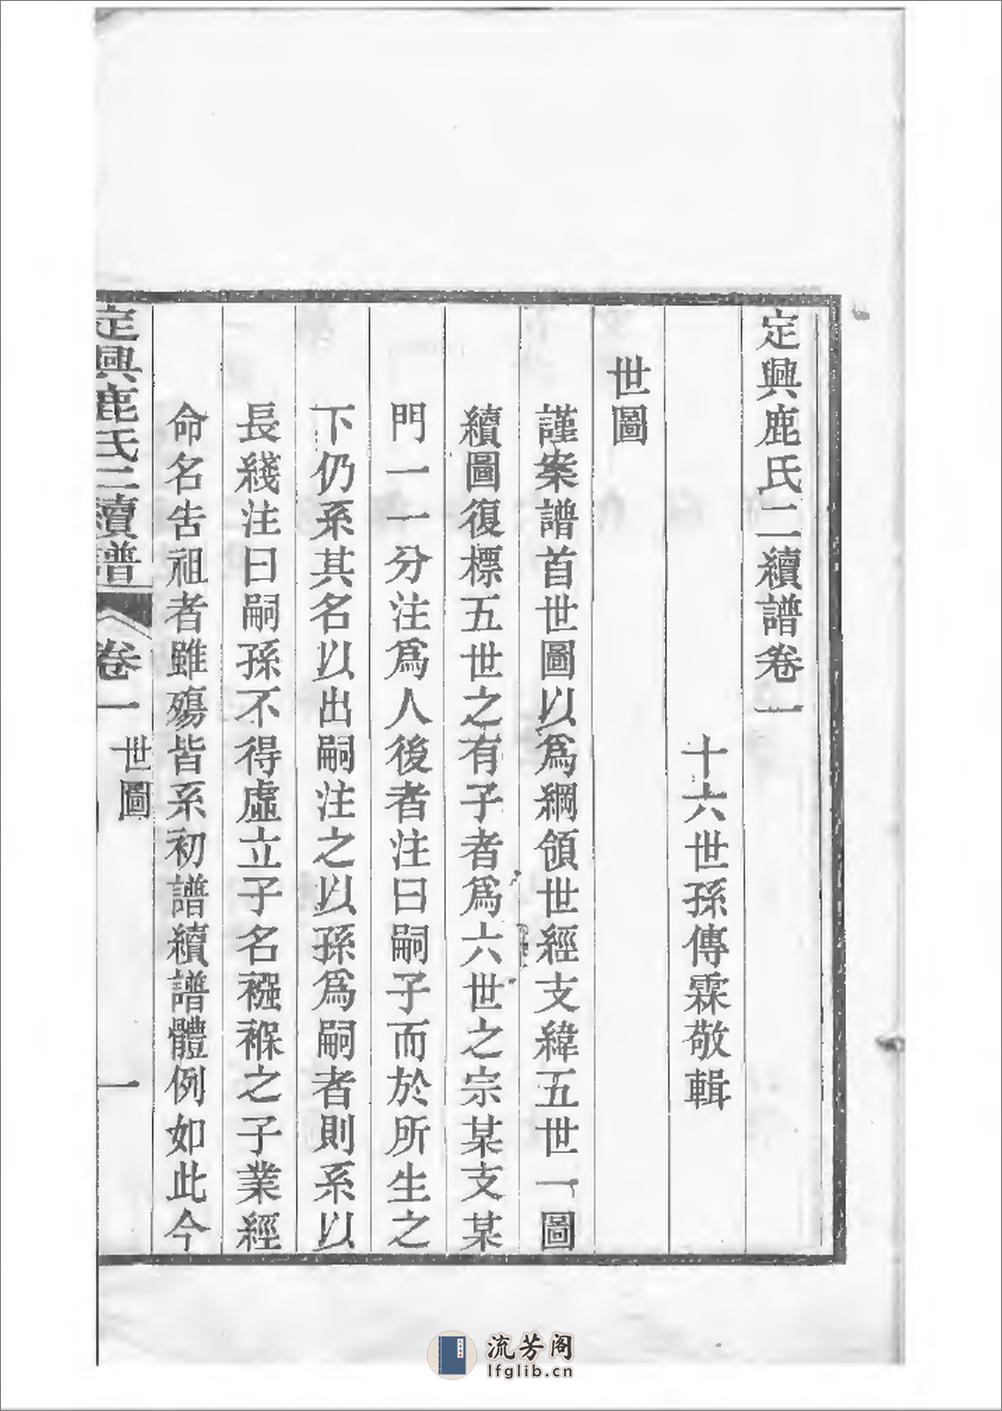 定興鹿氏二續譜卷一
十六世孫傳霖敬輯
世圖
謹案譜首世圖以爲綱領世經支緯五世一圖
續圖復標五世之有子者爲六世之宗某支某
門一一分注爲人後者注曰嗣子而於所生之
下仍系其名以出嗣注之以孫爲嗣者則系以
長綫注曰嗣孫不得虛立子名襁褓之子業經
命名告祖者雖殤皆系初譜續譜體例如此今
定興鹿氏二續譜
卷一
世圖
一
流芳阁
lfglib.cn